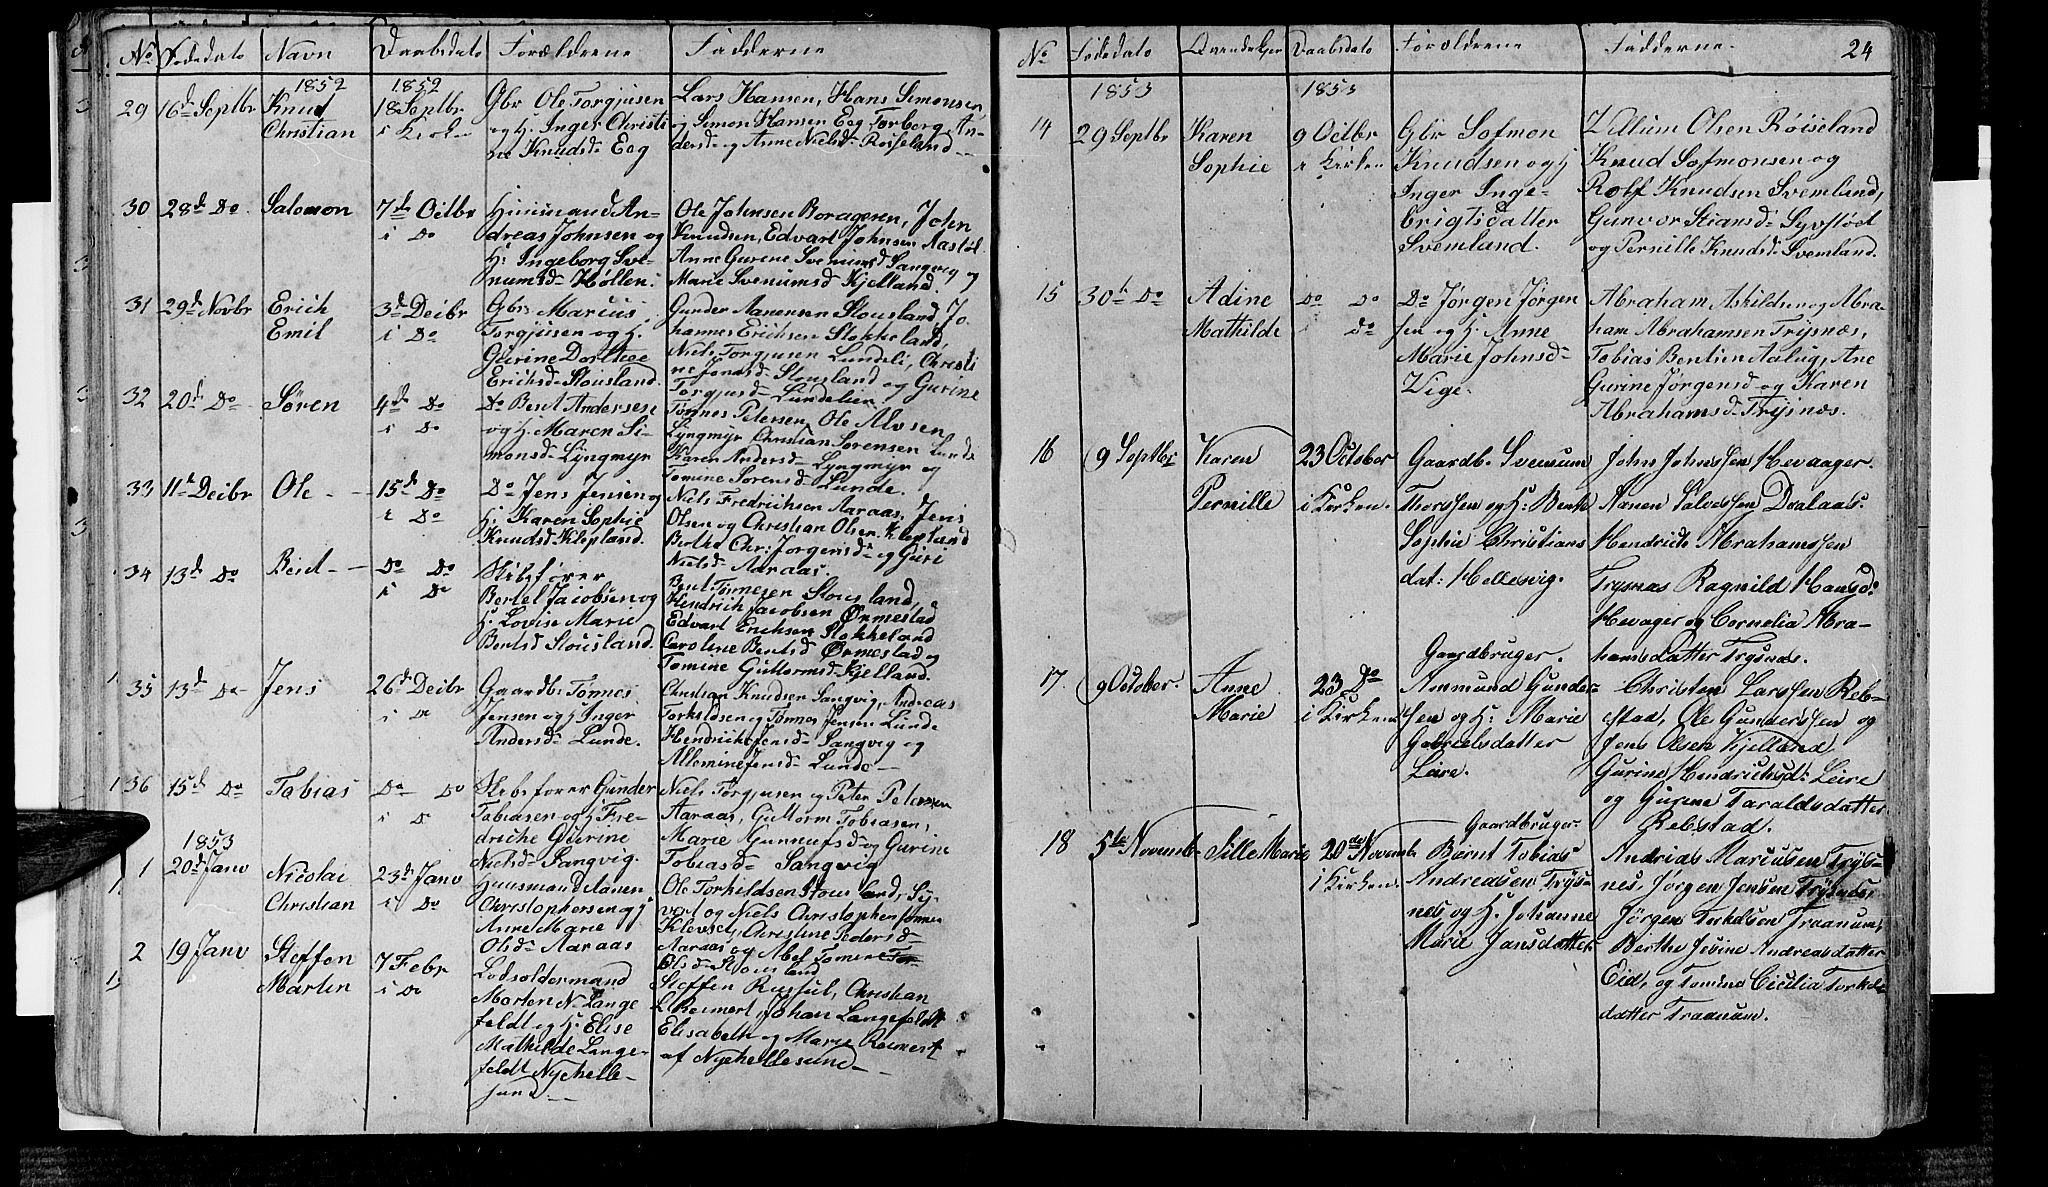 No Fødedato Navn Daabsdato Forældrene Fadderne
1852 1852
29 16d Septbr Knud Christian 18 Septbr i Kirken
Gbr Ole Torgjusen
og H. Inger Christi
ne Knudsd Eeg
Lars Hansen, Hans Simonsen
og Simon Hansen Eeg Torborg An-
dersd og Anne Nielsd Rosseland
30 28d Do Salomon 7d Octbr i Do
Huusmand An-
dreas Johnsen og
H. Ingeborg Sve-
numsd Høllen.
Ole Johnsen Borageren, John
Knudsen, Edvart Johnsen Aastøl
Anne Gurine Svenumsd Langvig og
Marie Svenumsd Kjelland.
31 29d Novbr Erich Emil 3d Decbr i Do
Gbr Marcus
Torgjusen og H.
Gurine Dorthee
Erichsd Stousland.
Gunder Aanensen Stousland, Jo-
hannes Erichsen Stokkeland,
Niels Torgjusen Lundeli, Christi
ne Jensd Stousland og Gurine
Torgjusd Lundelien.
32 20d Do Søren 4d Do i Do
Do Bent Andersen
og H. Maren Si-
monsd Lyngmyr
Tønnes Petersen, Ole Alvsen,
Lyngmyr Christian Sørensen Lunde
Karen Andersd Lyngmyr og
Tomine Sørensd Lunde.
33 11d Decbr Ole 15d Do i Do
Do Jens Jensen og
H. Karen Sophie
Knudsd Klepland.
Niels Fredrichsen Aaraas, Jens
Olsen og Christian Olsen Klepland
Berthe Chr: Jørgensd og Guri
Nielsd Aaraas.
34 13d Do Bent Do Do i Do
Skibsfører
Bertel Jacobsen og
H. Lovise Marie
Bentsd Stousland.
Bent Tønnesen Stousland,
Hendrich Jacobsen Ørmestad
Edvart Erichsen Stokkeland
Caroline Bentsd Ørmestad og
Tomine Guttormsd Kjelland.
35 13d Do Jens 26d Decbr i Do
Gaardb: Tønnes
Jensen og H Inger
Andersd Lunde.
Christian Knudsen Langvig, Andreas
Torkildsen og Tønnes Jensen Lunde
Hendrikke Jensd Langvig og
Allemine Jensd Lunde
36 15d Do Tobias Do Do i Do
Skibsfører Gunder
Tobiasen og H Fre-
driche Gurine
Nielsd Langvig.
Niels Torgjusen og Peter Petersen
Aaraas, Guttorm Tobiasen,
Marie Gunnufsd og Gurine
Tobiasd Langvig
1853
1 20d Janv Nicolai Christian 23d Janv i Do
Huusmand Aanen
Christophersen og H
Anne Marie
Olsd Aaraas
Ole Torkildsen Stousland, Sy-
vert og Niels Christophersønner
Klevset, Christine Pedersd
Aaraas og Abel Tomine
Olsd Stousland
2 19 Janv Steffen Martin 7 Febr i Do
Lodsoldermand
Morten N. Lange
feldt og H. Elise
Mathilde Lange-
feldt Nyehelle-
sund
Steffen Russul, Christian
L Reimert, Johan Langefeldt
Elisabeth og Marie Reimert
af Nyehellesund
No Fødedato Daabsdato Forældrene Fadderne 24
1853 1853
14 29 Septbr Karen Sophie 9 Octbr i Kirken
Gbr Sofmon
Knudsen og H
Inger Inge-
brigtsdatter
Svemland.
Zillum Olsen Røiseland
Knud Sofmonsen og
Rolf Knudsen Svemland,
Gunvor Stiansd
og Pernille Knudsd Svemland.
15 30d Do Adine Mathilde Do Do i Do
Do Jørgen Jørgen
sen og H. Anne
Marie Johnsd
Zige.
Abraham Askildsen og Abra-
ham Abrahamsen Trysnæs,
Tobias Bentsen Aalug, Ane
Gurine Jørgensd og Karen
Abrahamsd Trysnæs.
16 9 Septbr Karen Pernille 23 October i Kirken.
Gaardb. Svenum
Thorssen og H: Benthe
Sophie Christians
dat: Hellesvig.
John Johnssen Hevaager.
Aanen Salvessen Dvalaas.
Hendrich Abrahamssen
Trysnæs Ragnild Hansd:
Hevager og Cornelia Abra-
hamsdatter Trysnæs.
17 9 October. Anne Marie 23 Do i Kirken
Gaardbruger.
Ammund Gunder-
sen og H: Marie
Gabrielsdatter
Leire.
Christen Larssen Reb-
estad, Ole Gunderssen og
Jens Olsen Kjelland.
Gurine Hendrichsd: Leire
og Gurine Taraldsdatter
Rebstad.
18 5te Novembr Sille Marie 20de Novembr i Kirken.
Gaardbruger.
Bernt Tobias
Andreasen Trys-
nes og H. Johanne
Marie Jansdatter
Andrias Marcusen Trys-
nes, Jørgen Jensen Trysnes,
Jørgen Terkelsen Traanum,
Berthe Jesine Andreasdatter
Eid, og Tomine Cicilia Torkels
datter Traanum.